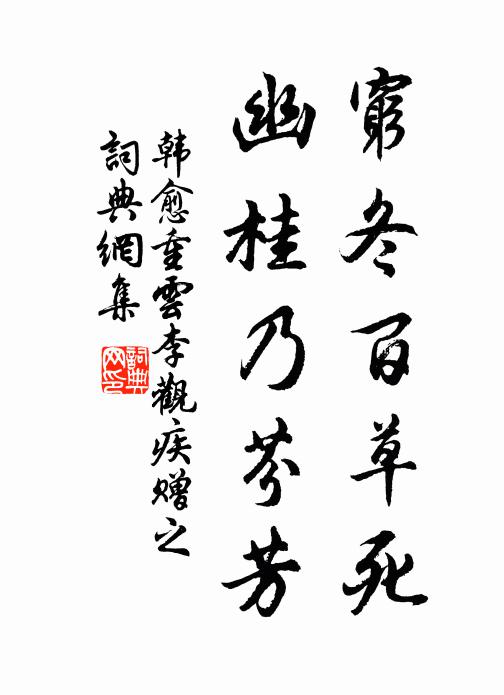 窮冬百草死
幽桂乃芬芳
韩愈重雲李觀疾贈之
詞典網集
詞典网印